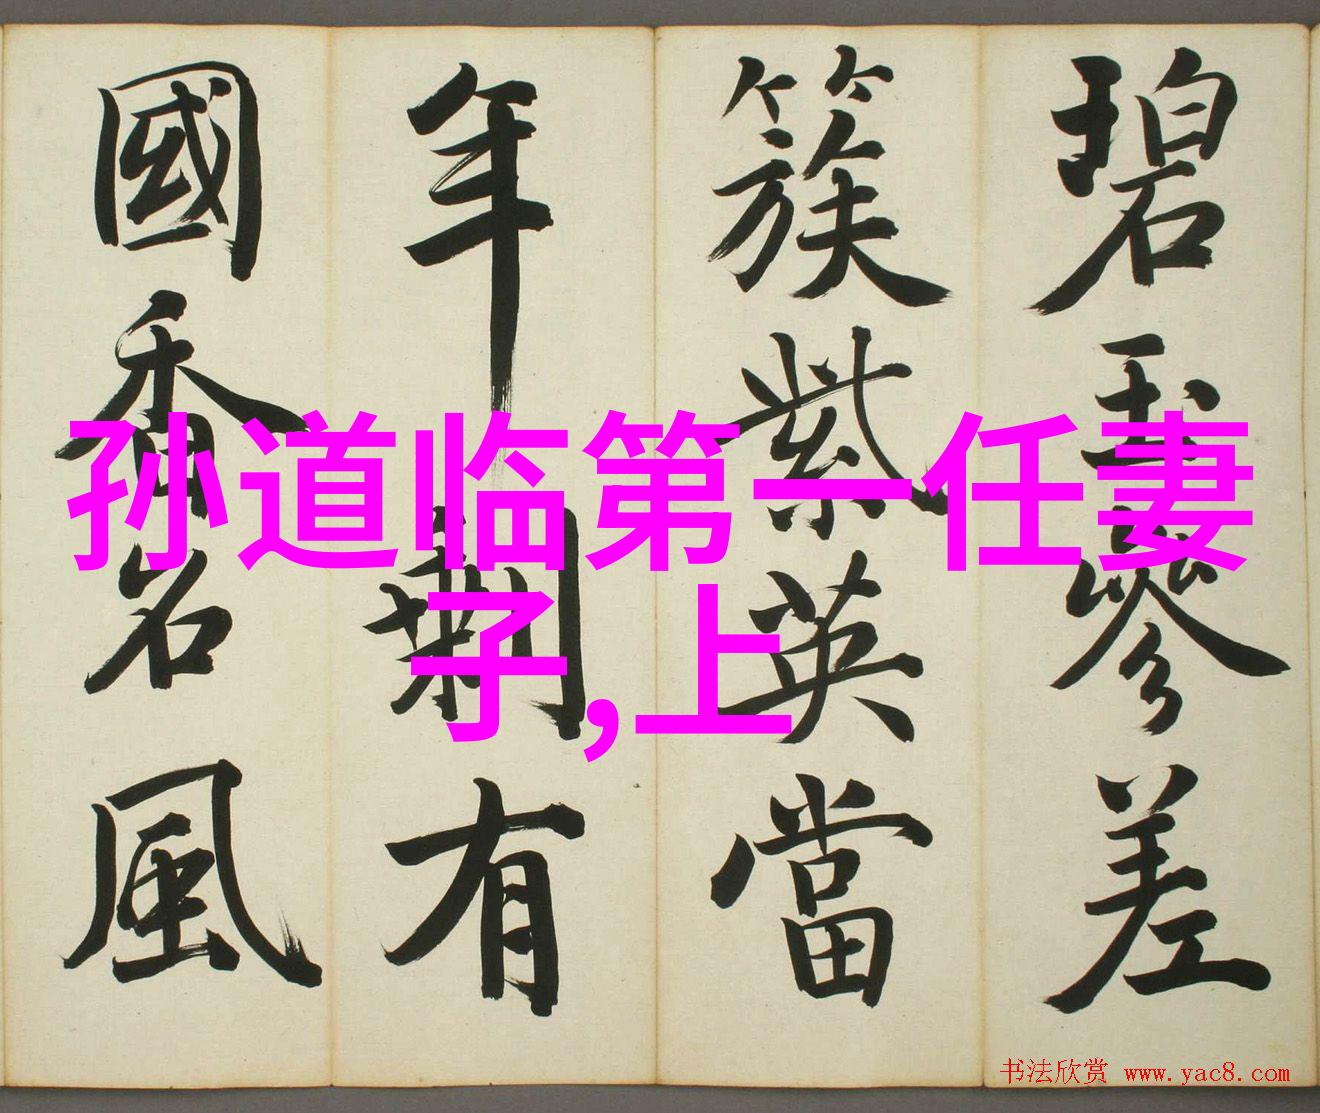 碧玉參差
簇紫英當
年剩有
國香名風
孙道临第一任妻
子,上
书法欣赏 www.yac8.com